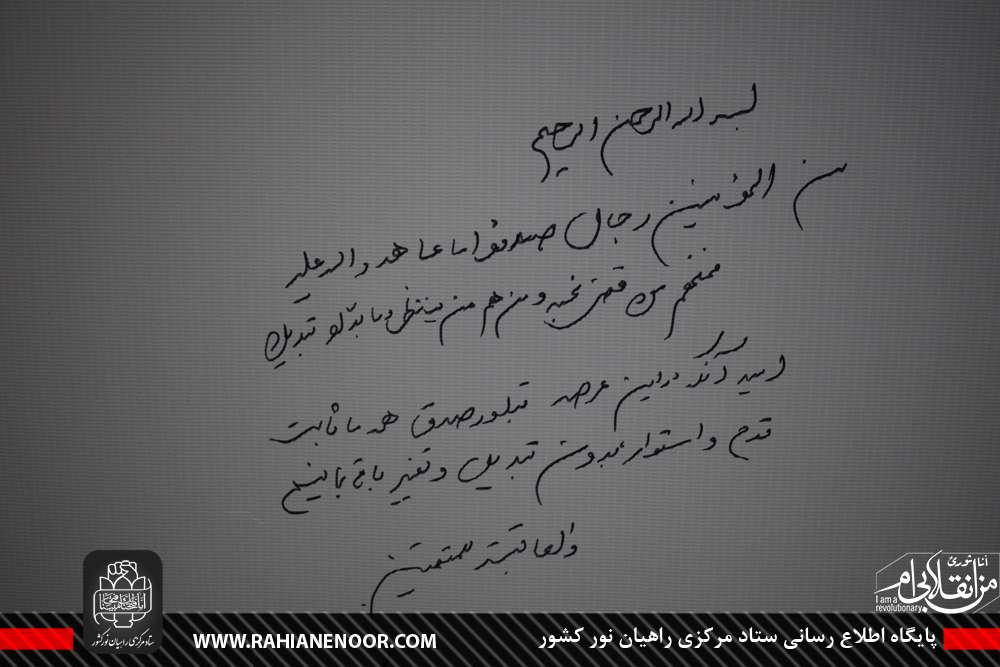 بسم الله الرحمن الرحیم
من المؤمنین رجال صدقوا ما عاهدوا الله علیه
فمنهم من قضی نحبه و من هم من ینتظر و ما بدّلو تبدیلا
امید آنکه در این عرصه تبلور صدق همه ما ثابت
قدم و استوار، بدون تبدیل و تغییر باقی بمانیم
والعاقبة للمتقین
ستاد مرکزی راهیان نور کشور
WWW.RAHIANENOOR.COM
پایگاه اطلاع رسانی ستاد مرکزی راهیان نور کشور
أنا ثوري
من انقلابی ام
I am a
revolutionary